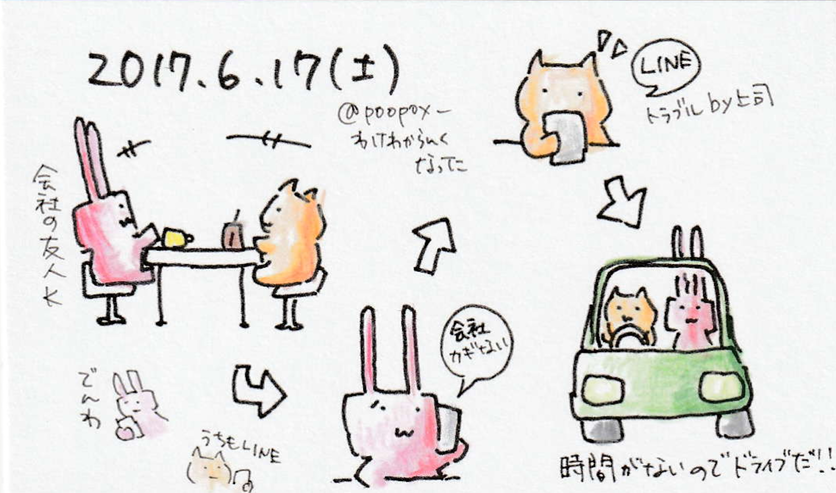 2017.6.17(土)
@poopoxー
わけわからんく
なってた
会社の友人K
LINE
トラブルby上司
会社
カギがない
でんわ
うちもLINE
時間がないのでドライブだ!!